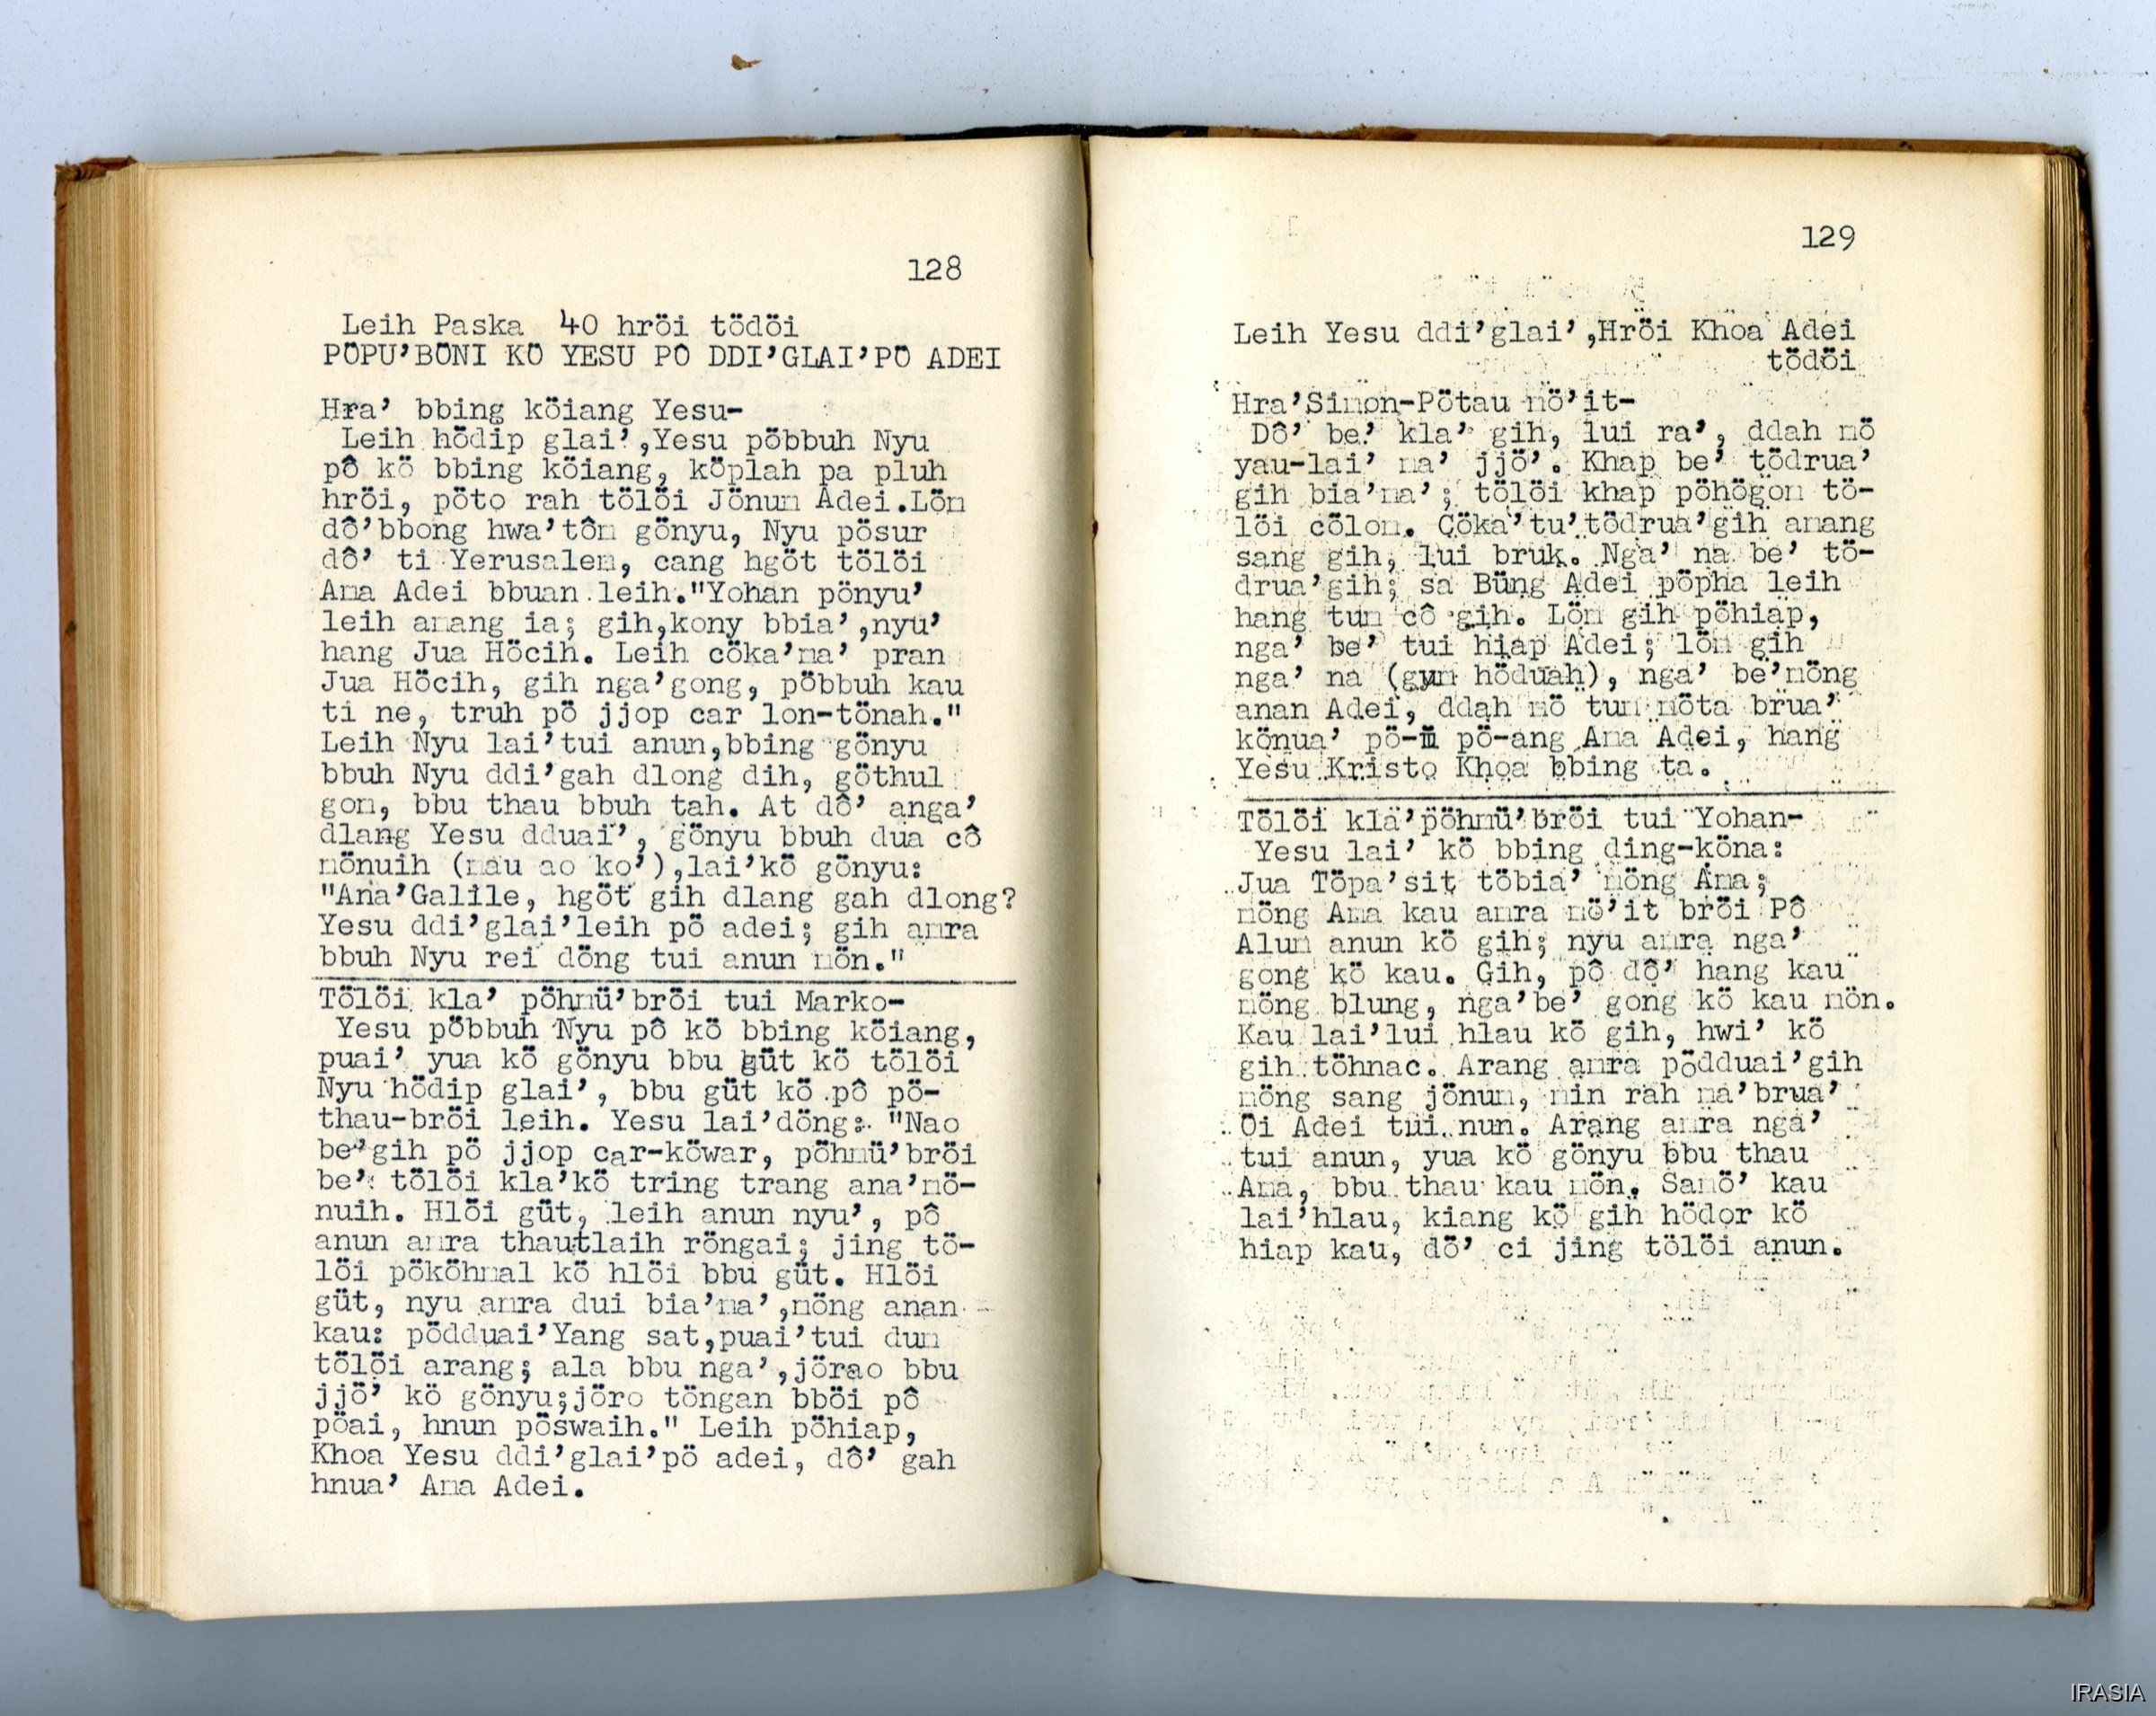 128
Leih Paska 40 hröi tödöi
PÖPU’BÖNI KÖ YESU PÔ DDI’GLAI’PÖ ADEI
Hra’ bbing köiang Yesu-
Leih hödip glai’,Yesu pöbbuh Nyu
pô kö bbing köiang, köplah pa pluh
hröi, pöto rah tölöi Jönum Adei.Löm
dô’bbong hwa’tôm gönyu, Nyu pösur
dô’ ti Yerusalem, cang hgöt tölöi
Ama Adei bbuan leih."Yohan pönyu’
leih amang ia; gih,kony bbia’,nyu’
hang Jua Höcih. Leih cöka’ma’ pran
Jua Höcih, gih nga’gong, pöbbuh kau
ti ne, truh pö jjop car lon-tönah."
Leih Nyu lai’tui anun,bbing gönyu
bbuh Nyu ddi’gah dlong dih, göthul
gom, bbu thau bbuh tah. At dô’ anga’
dlang Yesu dduai’, gönyu bbuh dua cô
mönuih (mau ao ko’),lai’kö gönyu:
"Ana’Galile, hgöt gih dlang gah dlong?
Yesu ddi’glai’leih pö adei; gih amra
bbuh Nyu rei döng tui anun mön."
Tölöi kla’ pöhmü’bröi tui Marko-
Yesu pöbbuh Nyu pô kö bbing köiang,
puai’ yua kö gönyu bbu güt kö tölöi
Nyu hödip glai’, bbu güt kö pô pö-
thau-bröi leih. Yesu lai’döng: "Nao
be’gih pö jjop car-köwar, pöhmü’bröi
be’ tölöi kla’kö tring trang ana’mö-
nuih. Hlöi güt, leih anun nyu’, pô
anun amra thautlaih röngai; jing tö-
löi pököhmal kö hlöi bbu güt. Hlöi
güt, nyu amra dui bia’ma’,möng anan
kau: pödduai’Yang sat,puai’tui dum
tölöi arang; ala bbu nga’,jörao bbu
jjö’ kö gönyu;jöro töngan bböi pô
pöai, hnun pöswaih." Leih pöhiap,
Khoa Yesu ddi’glai’pö adei, dô’ gah
hnua’ Ama Adei.
129
Leih Yesu ddi’glai’,Hröi Khoa Adei
tödöi
Hra’Simon-Pötau mö’it-
Dô’ be’ kla’ gih, lui ra’, ddah mö
yau-lai’ ma’ jjö’. Khap be’ tödrua’
gih bia’ma’; tölöi khap pöhögom tö-
löi cölom. Cöka’tu’tödrua’gih amang
sang gih, lui bruk. Nga’ na be’ tö-
drua’gih; sa Büng Adei pöpha leih
hang tum cô gih. Löm gih pöhiap,
nga’ be’ tui hiap Adei; löm gih
nga’ na (gum höduah), nga’ be’möng
anan Adei, ddah mö tum möta brua’
könua’ pö- pö-ang Ama Adei, hang
Yesu Kristo Khoa bbing ta.
Tölöi kla’pöhmü’bröi tui Yohan-
Yesu lai’ kö bbing ding-köna:
Jua Töpa’sit töbia’ möng Ama;
möng Ama kau amra mö’it bröi Pô
Alum anun kö gih; nyu amra nga’
gong kö kau. Gih, pô dô’ hang kau
möng blung, nga’be’ gong kö kau mön.
Kau lai’lui hlau kö gih, hwi’ kö
gih töhnac. Arang amra pödduai’gih
möng sang jönum, min rah ma’brua’
Öi Adei tui nun. Arang amra nga’
tui anun, yua kö gönyu bbu thau
Ama, bbu thau kau mön. Samö’ kau
lai’hlau, kiang kö gih hödor kö
hiap kau, dö’ ci jing tölöi anun.
IRASIA